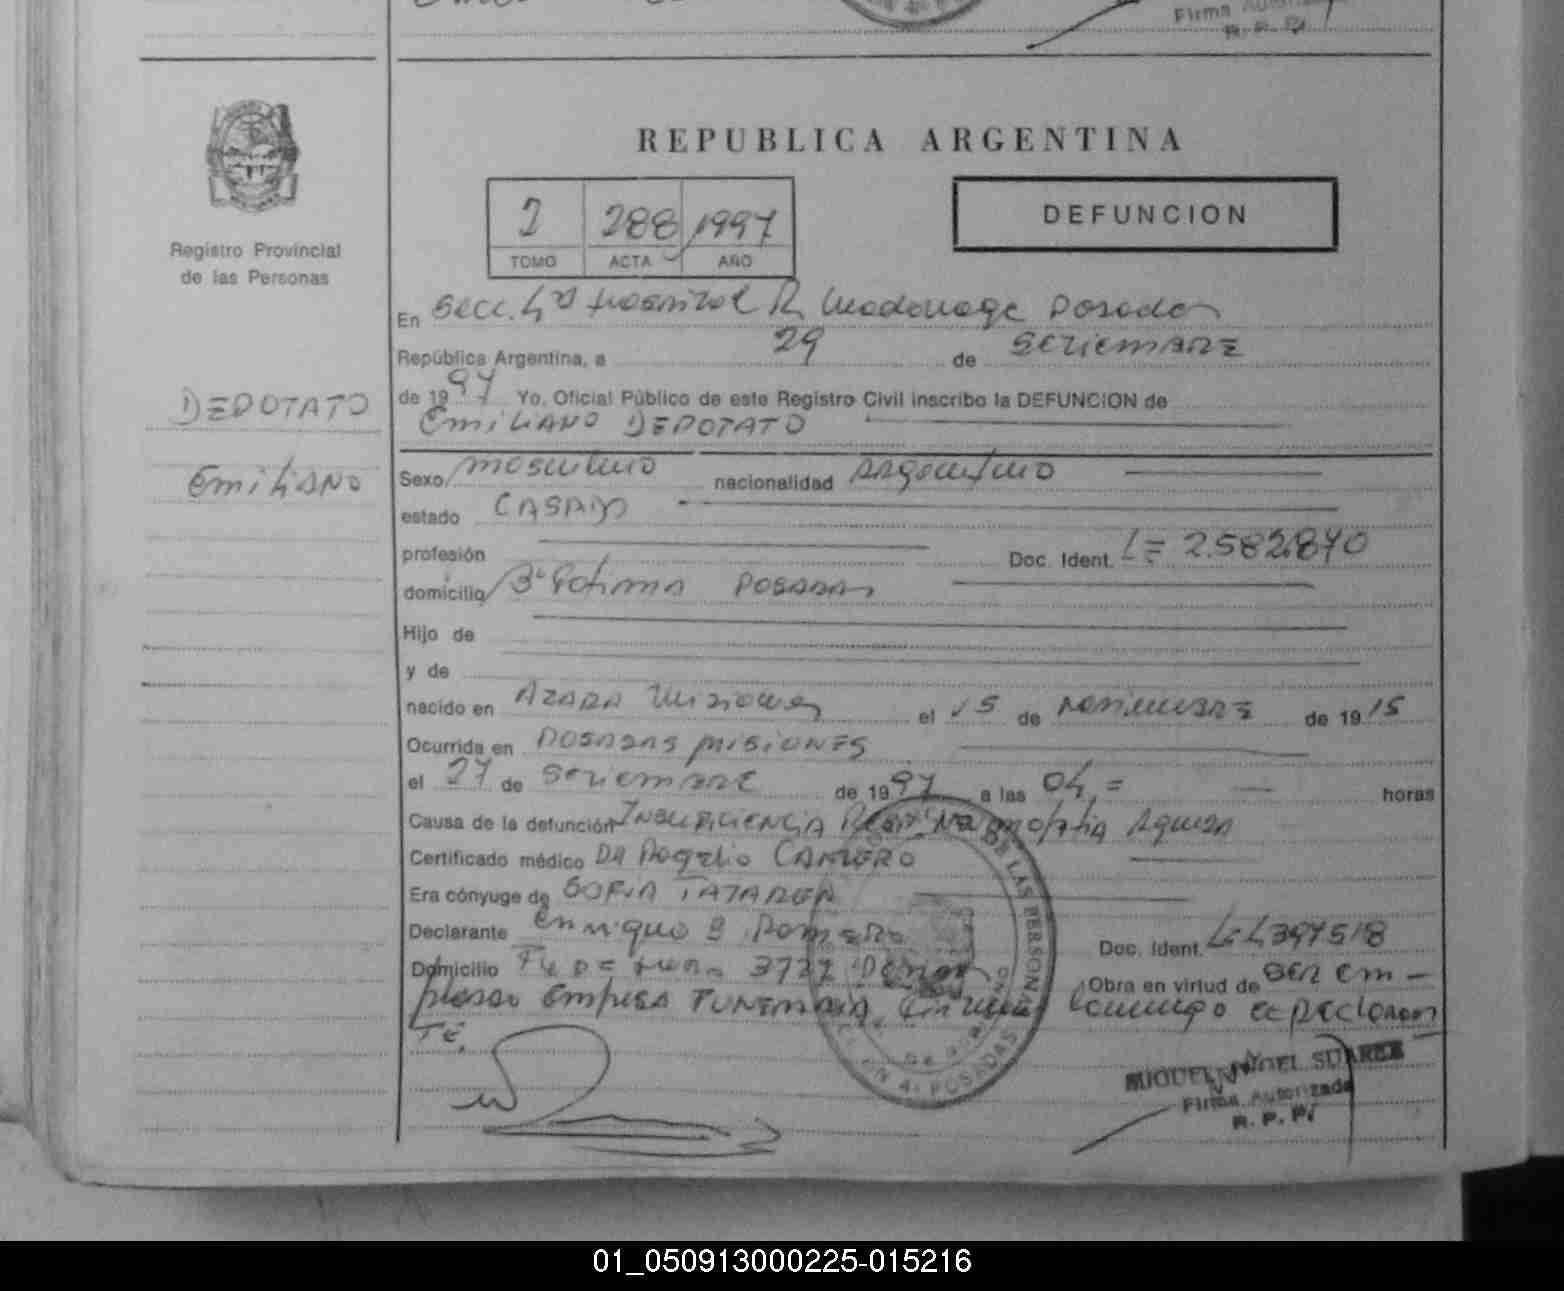 Firma
R. P. P.
Registro Provincial
de las Personas
REPUBLICA ARGENTINA
2 288 1997
TOMO ACTA AÑO
DEFUNCION
En Secc. 4ta Hospital R. Madariaga Posadas
República Argentina, a 29 de SETIEMBRE
de 1997 Yo, Oficial Público de este Registro Civil inscribo la DEFUNCION de
EMILIANO DEPOTATO
DEPOTATO
EMILIANO
Sexo masculino nacionalidad Argentino
estado CASADO
profesión Doc. Ident. LE 2.582.870
domicilio Bº Fatima POSADAS
Hijo de
y de
nacido en AZARA Misiones el 15 de NOVIEMBRE de 1915
Ocurrida en POSADAS MISIONES
el 27 de SETIEMBRE de 1997 a las 04,= horas
Causa de la defunción INSUFICIENCIA AGUDA
Certificado médico DR Rogelio CANTERO
Era cónyuge de SOFIA
Declarante Enrique Doc. Ident.
Domicilio 3727 Obra en virtud de SER EM-
pleado EMPRESA FUNERARIA
TE.
DE LAS PERSONAS
POSADAS
MIGUEL ANGEL SUAREZ
Firma Autorizada
R. P. P.
01_050913000225-015216